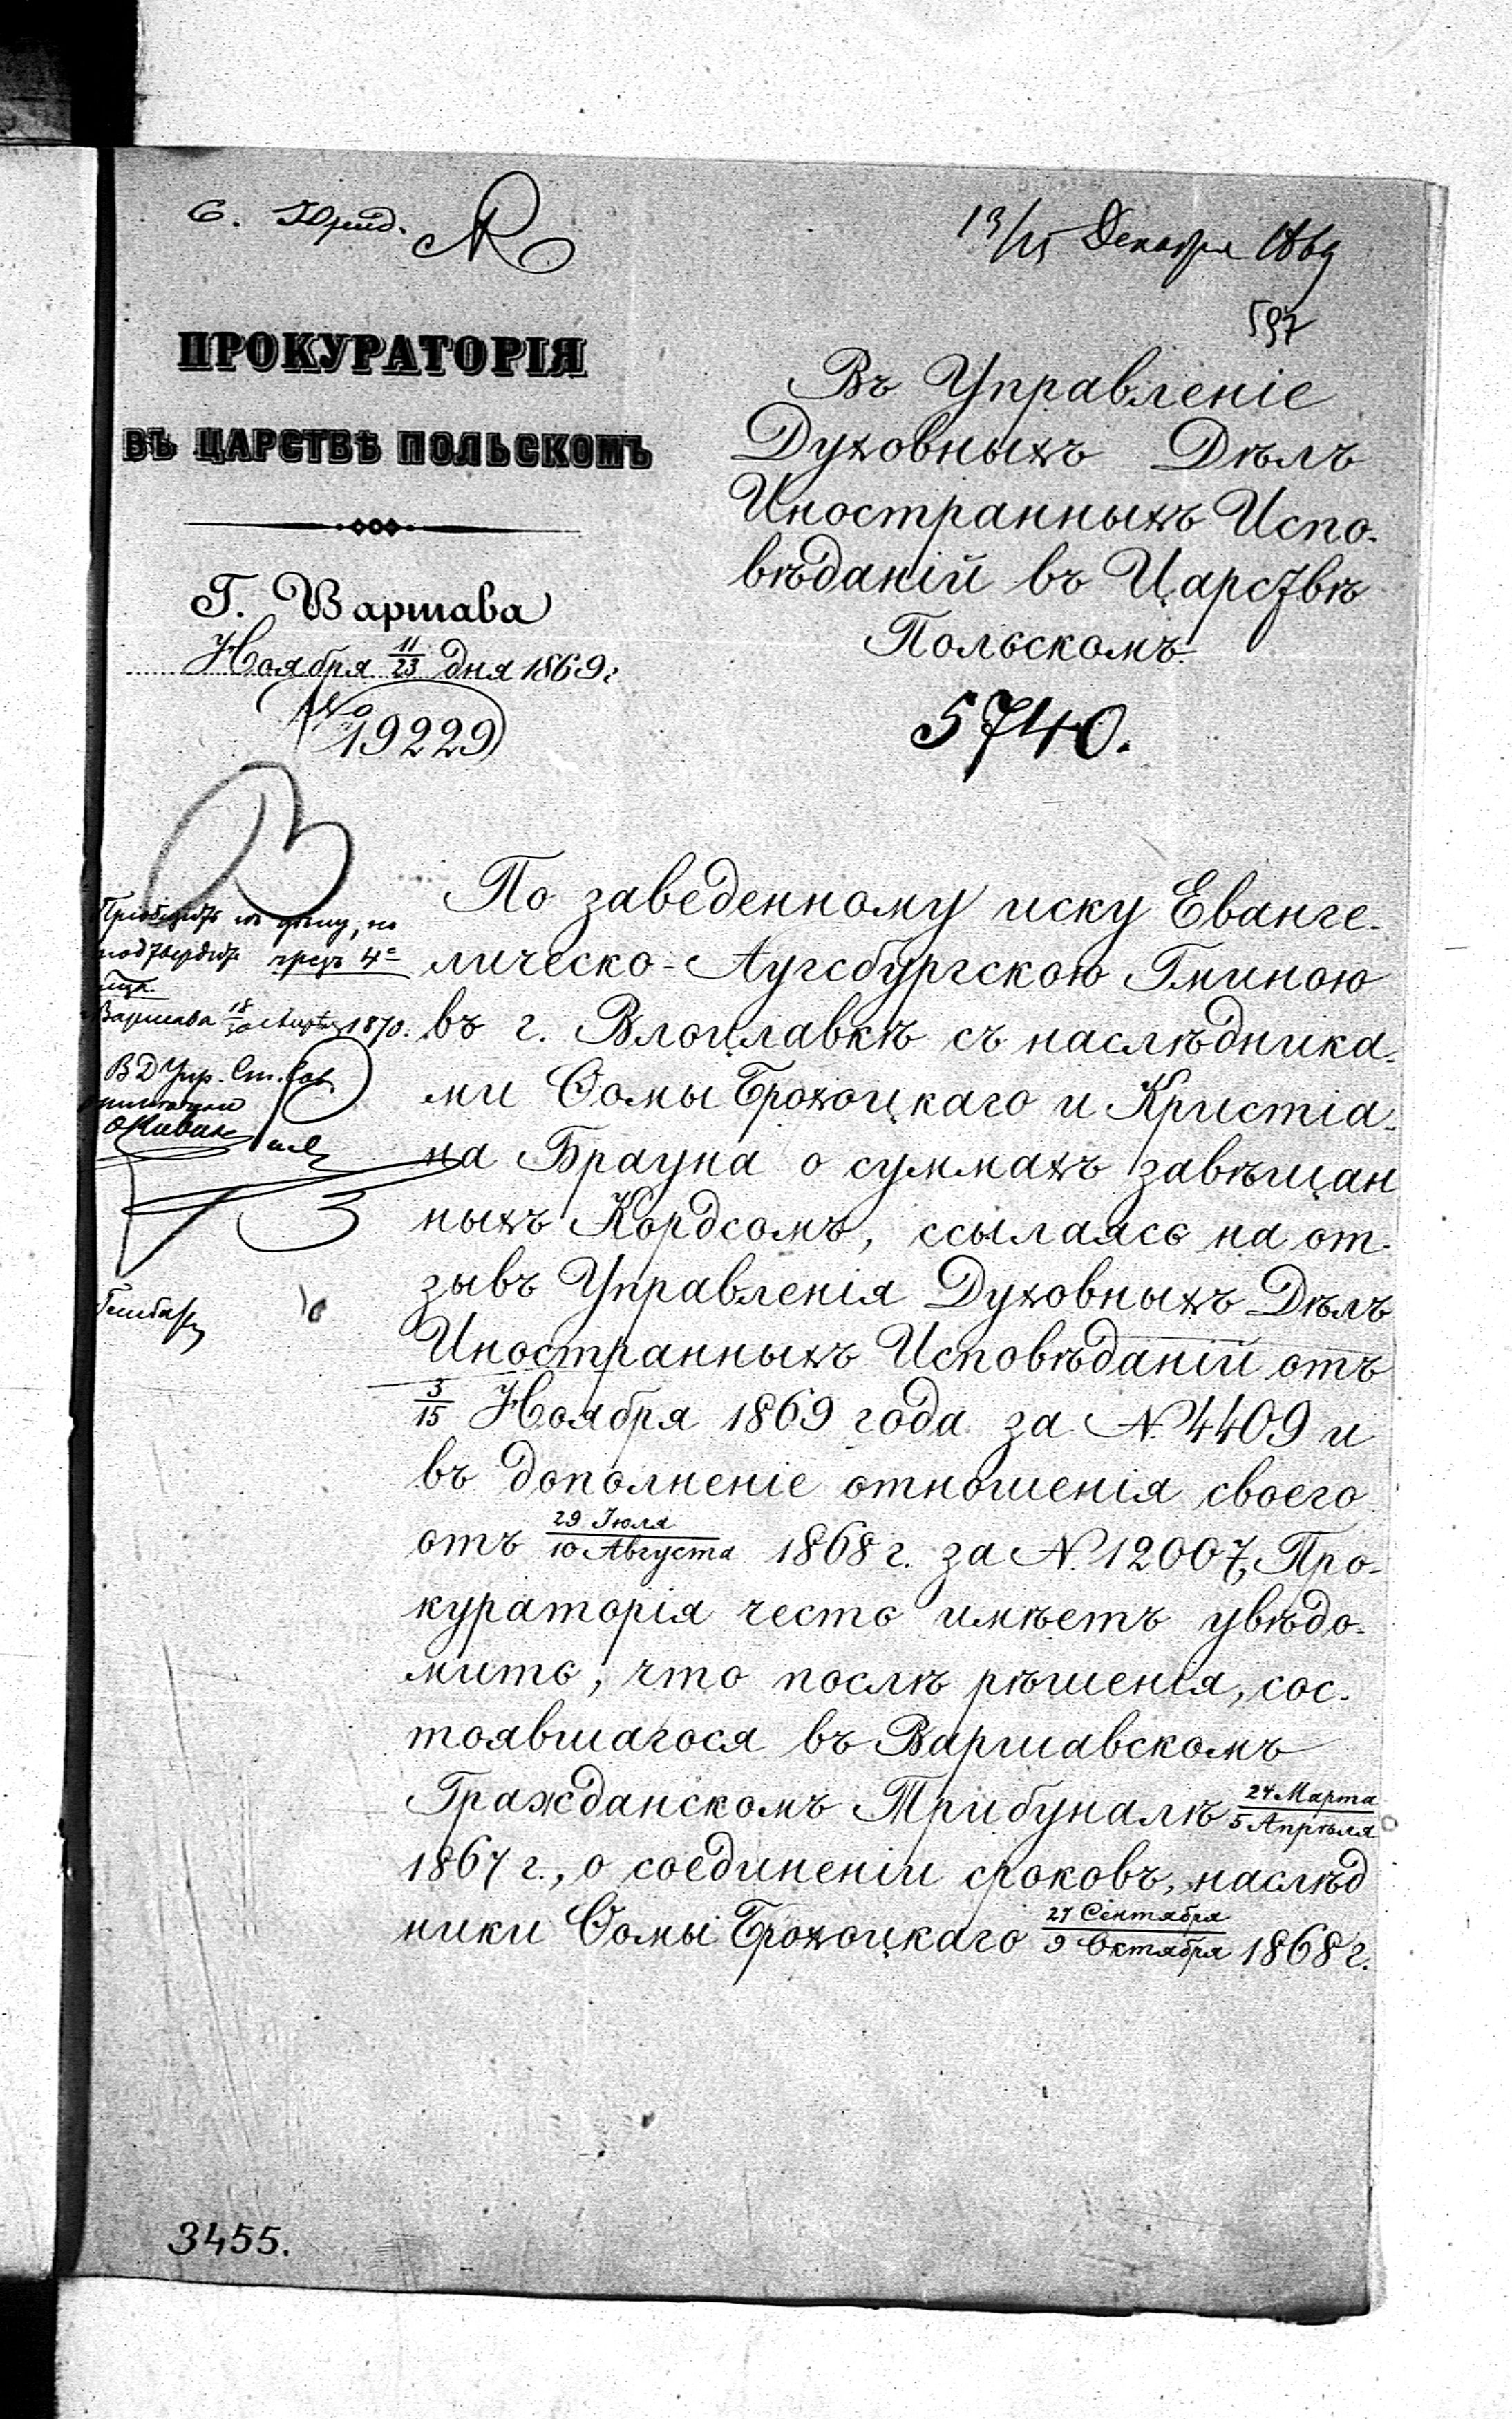 6. Юрид.
13/25 Декабря 1869
597
ПРОКУРАТОРІЯ
ВЪ ЦАРСТВѢ ПОЛЬСКОМЪ
Г. Варшава
Ноября 11/23 дня 1869 г.
№ 19229
Въ Управленіе
Духовныхъ Дѣлъ
Иностранныхъ Испо-
вѣданій въ Царствѣ
Польскомъ.
5740.
Пріобщить къ дѣлу, но
подтвердить чрезъ 4
Варшава 18/30 1870.
В Д Упр. Ст. Сов.
По заведенному иску Еванге-
лическо-Аугсбургскою Гминою
въ г. Влоцлавкѣ съ наслѣдника-
ми Ѳомы Брохоцкаго и Кристіа-
на Брауна о суммахъ завѣщан
ныхъ Кордсомъ, ссылаясь на от-
зывъ Управленія Духовныхъ Дѣлъ
Иностранныхъ Исповѣданій отъ
3/15 Ноября 1869 года за №. 4409 и
въ дополненіе отношенія своего
отъ 29 Іюля/10 Августа 1868 г. за №. 12007, Про-
кураторія честь имѣетъ увѣдо-
мить, что послѣ рѣшенія, сос-
тоявшагося въ Варшавскомъ
Гражданскомъ Трибуналѣ 24 Марта/5 Апрѣля
1867 г., о соединеніи сроковъ, наслѣд
ники Ѳомы Брохоцкаго 27 Сентября/9 Октября 1868 г.
3455.